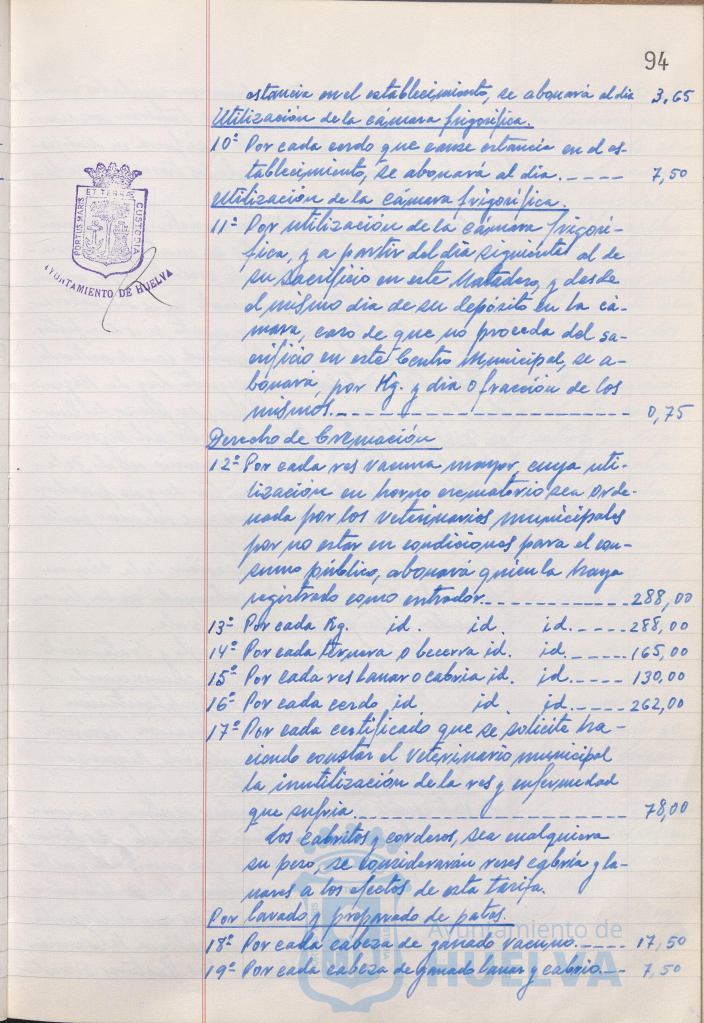 94
estancia en el establecimiento, se abonará al día 3,65
Utilización de la cámara frigorífica.
10º Por cada cerdo que cause estancia en el es-
tablecimiento, se abonará al día.---- 7,50
Utilización de la cámara frigorífica.
11º Por utilización de la cámara frigorí-
fica, y a partir del día siguiente al de
su sacrificio en este Matadero, y desde
el mismo día de su depósito en la cá-
mara, caso de que no proceda del sa-
crificio en este Centro Municipal, se a-
bonará, por Kg. y día o fracción de los
mismos.---- 0,75
Derecho de Cremación
12º Por cada res vacuna mayor, cuya uti-
lización en horno crematorio sea orde-
nada por los Veterinarios municipales
por no estar en condiciones para el con-
sumo público, abonará quien la haya
registrado como entrador.---- 288,00
13º Por cada Kg. id. id. id.---- 288,00
14º Por cada ternera o becerra id. id.---- 165,00
15º Por cada res lanar o cabria id. id.---- 130,00
16º Por cada cerdo id. id. id.---- 262,00
17º Por cada certificado que se solicite ha-
ciendo constar el Veterinario municipal
la inutilización de la res y enfermedad
que sufría.---- 78,00
Los cabritos y corderos, sea cualquiera
su peso, se considerarán reses cabría y la-
nares a los efectos de esta tarifa.
Por lavado y preparado de patas.
18º Por cada cabeza de ganado vacuno.---- 17,50
19º Por cada cabeza de ganado lanar y cabrío.-- 7,50
PORTUS MARIS ET TERRAE CUSTODIA
AYUNTAMIENTO DE HUELVA
Ayuntamiento de
HUELVA